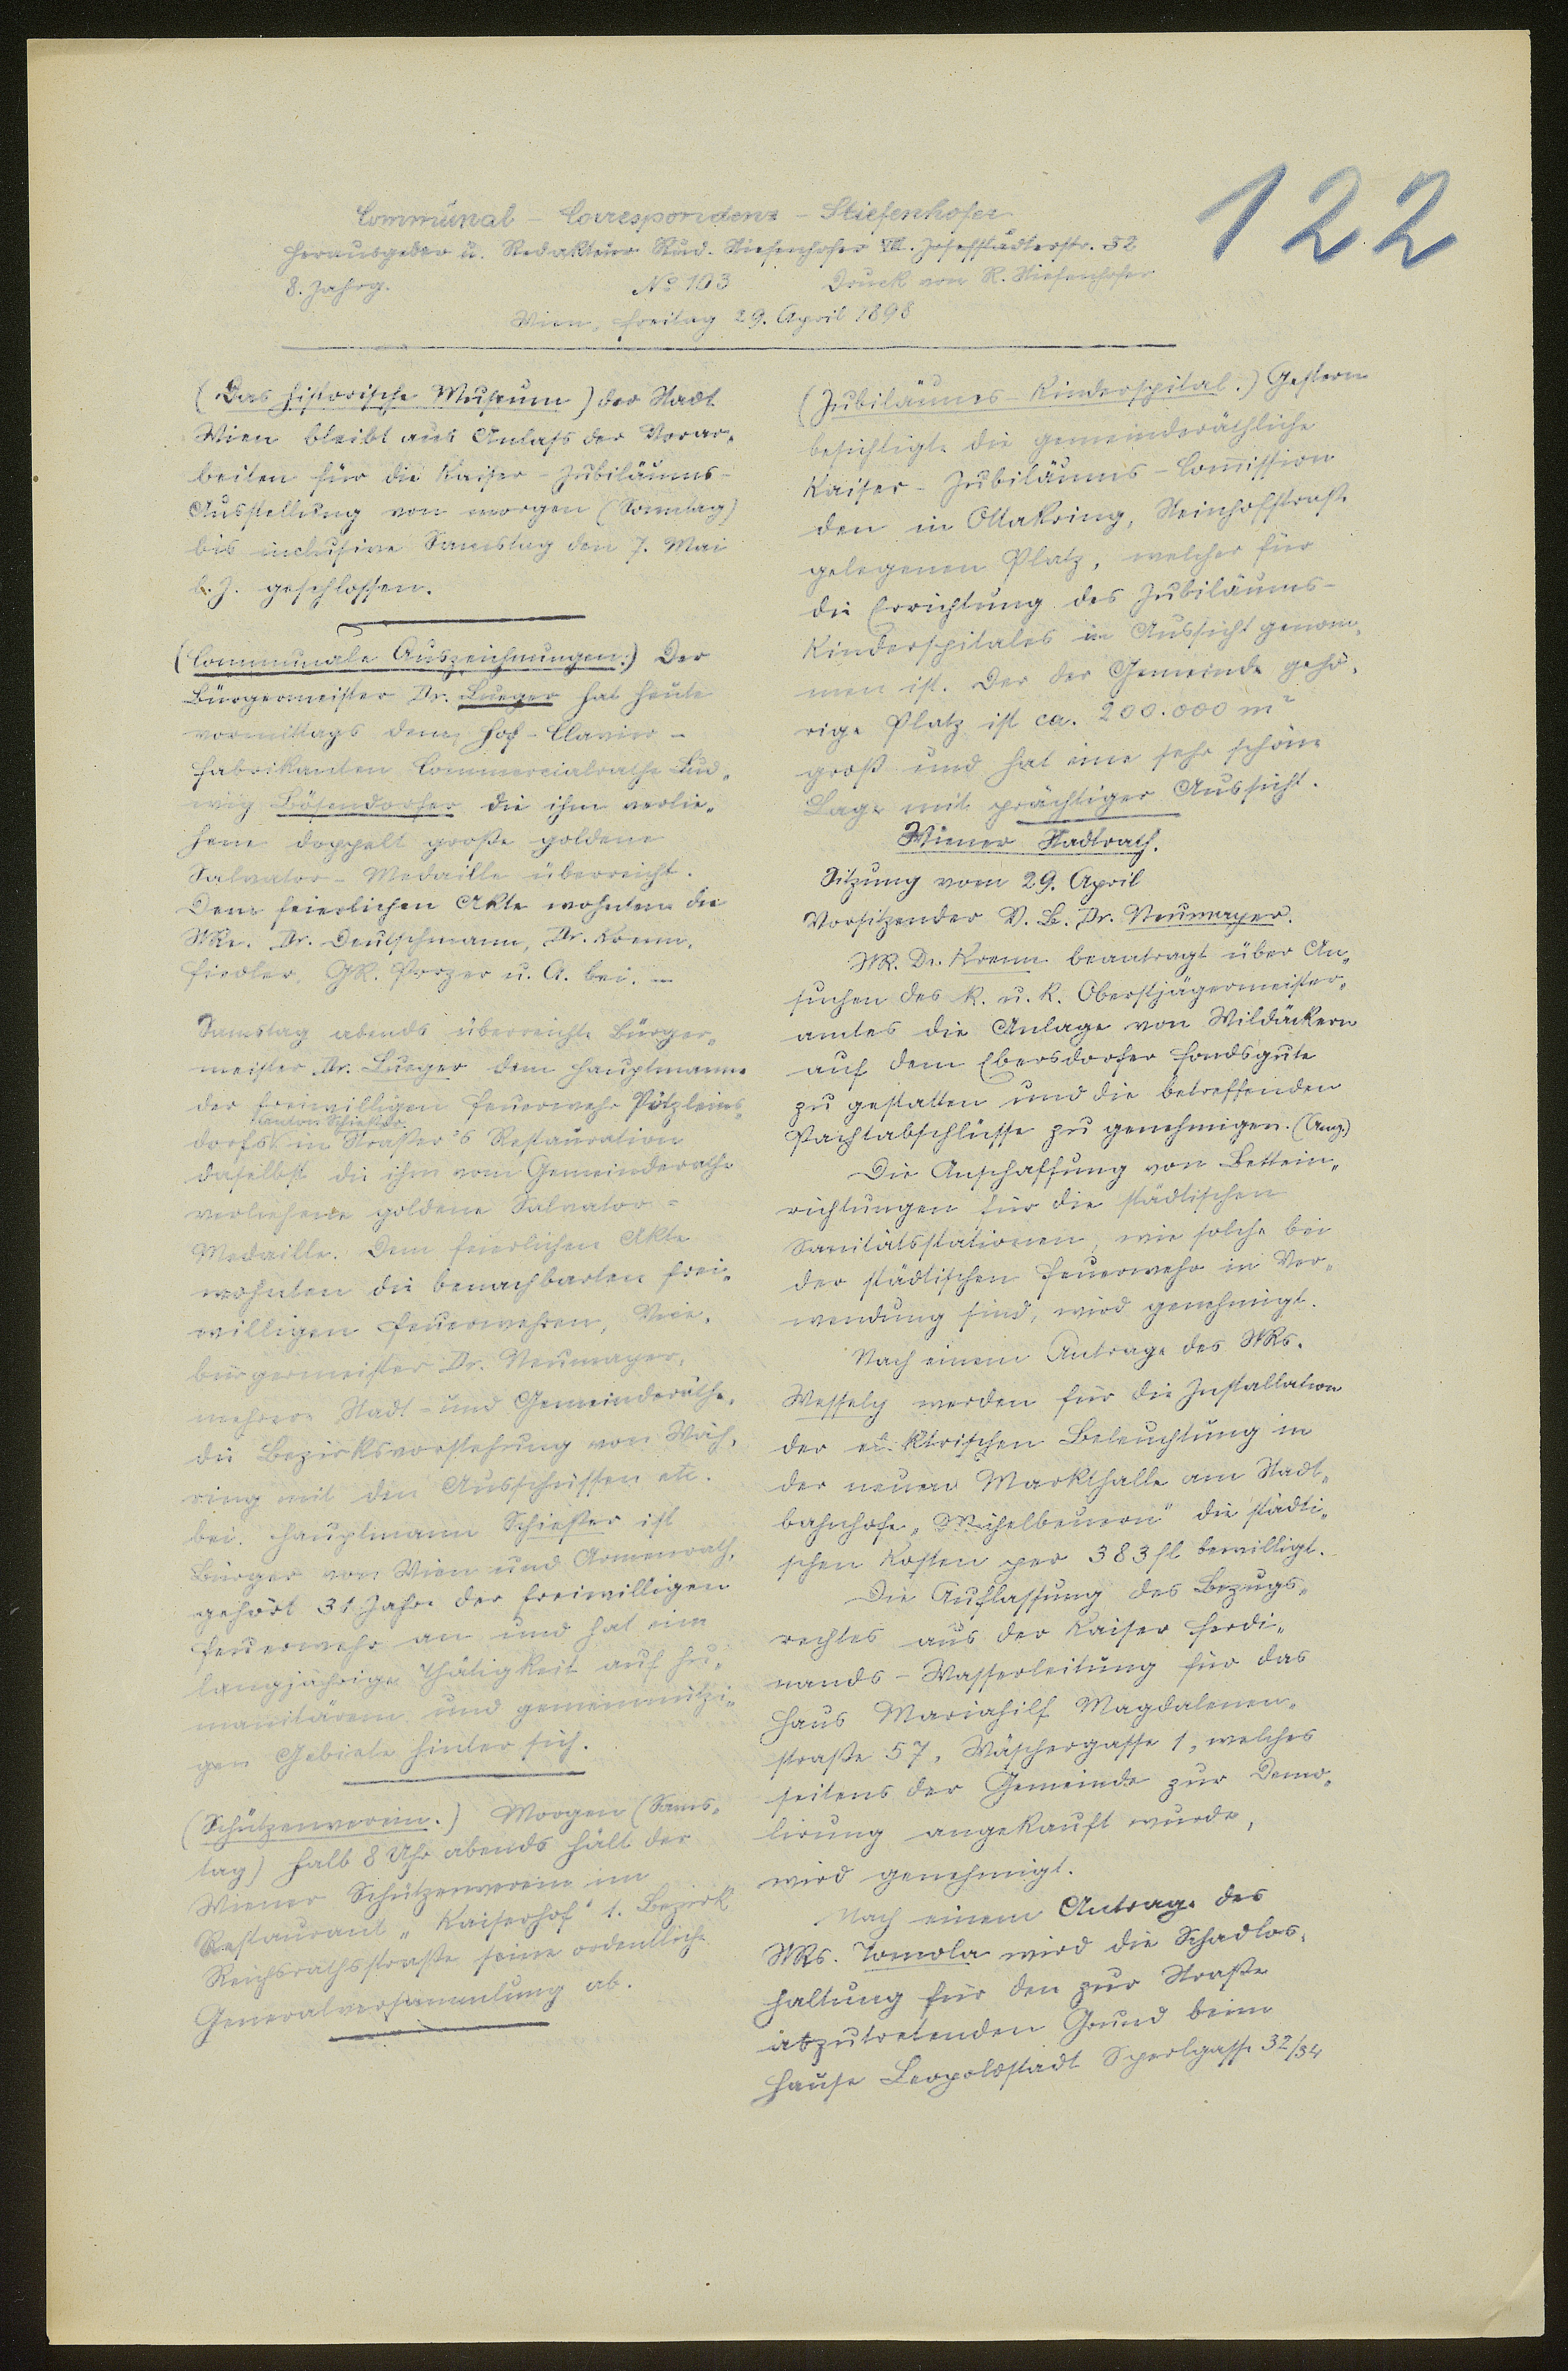 122
Communal - Correspondenz - Stiefenhofer
Herausgeber u. Redakteur Rud. Stiefenhofer VIII. Josefstädterstr. 52
8. Jahrg. No 103 Druck von R. Stiefenhofer
Wien, Freitag 29. April 1898
(Das historische Museum) der Stadt
Wien bleibt aus Anlaß der Vorar-
beiten für die Kaiser-Jubiläums-
Ausstellung von morgen (Sonntag)
bis inclusive Samstag den 7. Mai
l. J. geschlossen.
(Communale Auszeichnungen.) Der
Bürgermeister Dr. Lueger hat heute
vormittags dem Hof-Clavier-
fabrikanten Commercialrathe Lud-
wig Bösendorfer die ihm verlie-
hene doppelt große goldene
Salvator-Medaille überreicht.
Dem feierlichen Akte wohnten die
StRe. Dr. Deutschmann, Dr. Krenn,
Fiedler, GR. Porzer u. A. bei. —
Samstag abends überreichte Bürger-
meister Dr. Lueger dem Hauptmanne
der freiwilligen Feuerwehr Pötzleins-
Anton Schießer
dorfs in Straßer's Restauration
daselbst die ihm vom Gemeinderathe
verliehene goldene Salvator-
Medaille. Dem feierlichen Akte
wohnten die benachbarten frei-
willigen Feuerwehren, Vice-
bürgermeister Dr. Neumayer,
mehrere Stadt- und Gemeinderäthe,
die Bezirksvorstehung von Wäh-
ring mit den Ausschüssen etc.
bei. Hauptmann Schießer ist
Bürger von Wien und Armenrath,
gehört 31 Jahre der freiwilligen
Feuerwehr an und hat eine
langjährige Thätigkeit auf hu-
manitärem und gemeinnützi-
gem Gebiete hinter sich.
(Schützenverein.) Morgen (Sams-
tag) halb 8 Uhr abends hält der
Wiener Schützenverein im
Restaurant „Kaiserhof“ 1. Bezirk
Reichsrathsstraße seine ordentliche
Generalversammlung ab.
(Jubiläums-Kinderspital.) Gestern
besichtigte die gemeinderäthliche
Kaiser-Jubiläums-Com̄ission
den in Ottakring, Steinhofstraße
gelegenen Platz, welcher für
die Errichtung des Jubiläums-
Kinderspitales in Aussicht genom-
men ist. Der der Gemeinde gehö-
rige Platz ist ca. 200.000 m²
groß und hat eine sehr schöne
Lage mit prächtiger Aussicht.
Wiener Stadtrath.
Sitzung vom 29. April
Vorsitzender V. B. Dr. Neumayer.
StR. Dr. Krenn beantragt über An-
suchen des k. u. k. Oberstjägermeister-
amtes die Anlage von Wildäckern
auf dem Ebersdorfer Fondsgute
zu gestatten und die betreffenden
Pachtabschlüsse zu genehmigen. (Ang.)
Die Anschaffung von Bettein-
richtungen für die städtischen
Sanitätsstationen, wie solche bei
der städtischen Feuerwehr in Ver-
wendung sind, wird genehmigt.
Nach einem Antrage des StRs.
Wessely werden für die Installation
der elektrischen Beleuchtung in
der neuen Markthalle am Stadt-
bahnhofe „Michelbeuern“ die städti-
schen Kosten per 383 fl bewilligt.
Die Auflassung des Bezugs-
rechtes aus der Kaiser Ferdi-
nands-Wasserleitung für das
Haus Mariahilf Magdalenen-
straße 57, Wäschergasse 1, welches
seitens der Gemeinde zur Demo-
lirung angekauft wurde,
wird genehmigt.
Nach einem Antrage des
StRs. Tomola wird die Schadlos-
haltung für den zur Straße
abzutretenden Grund beim
Hause Leopoldstadt Sperlgasse 32/34